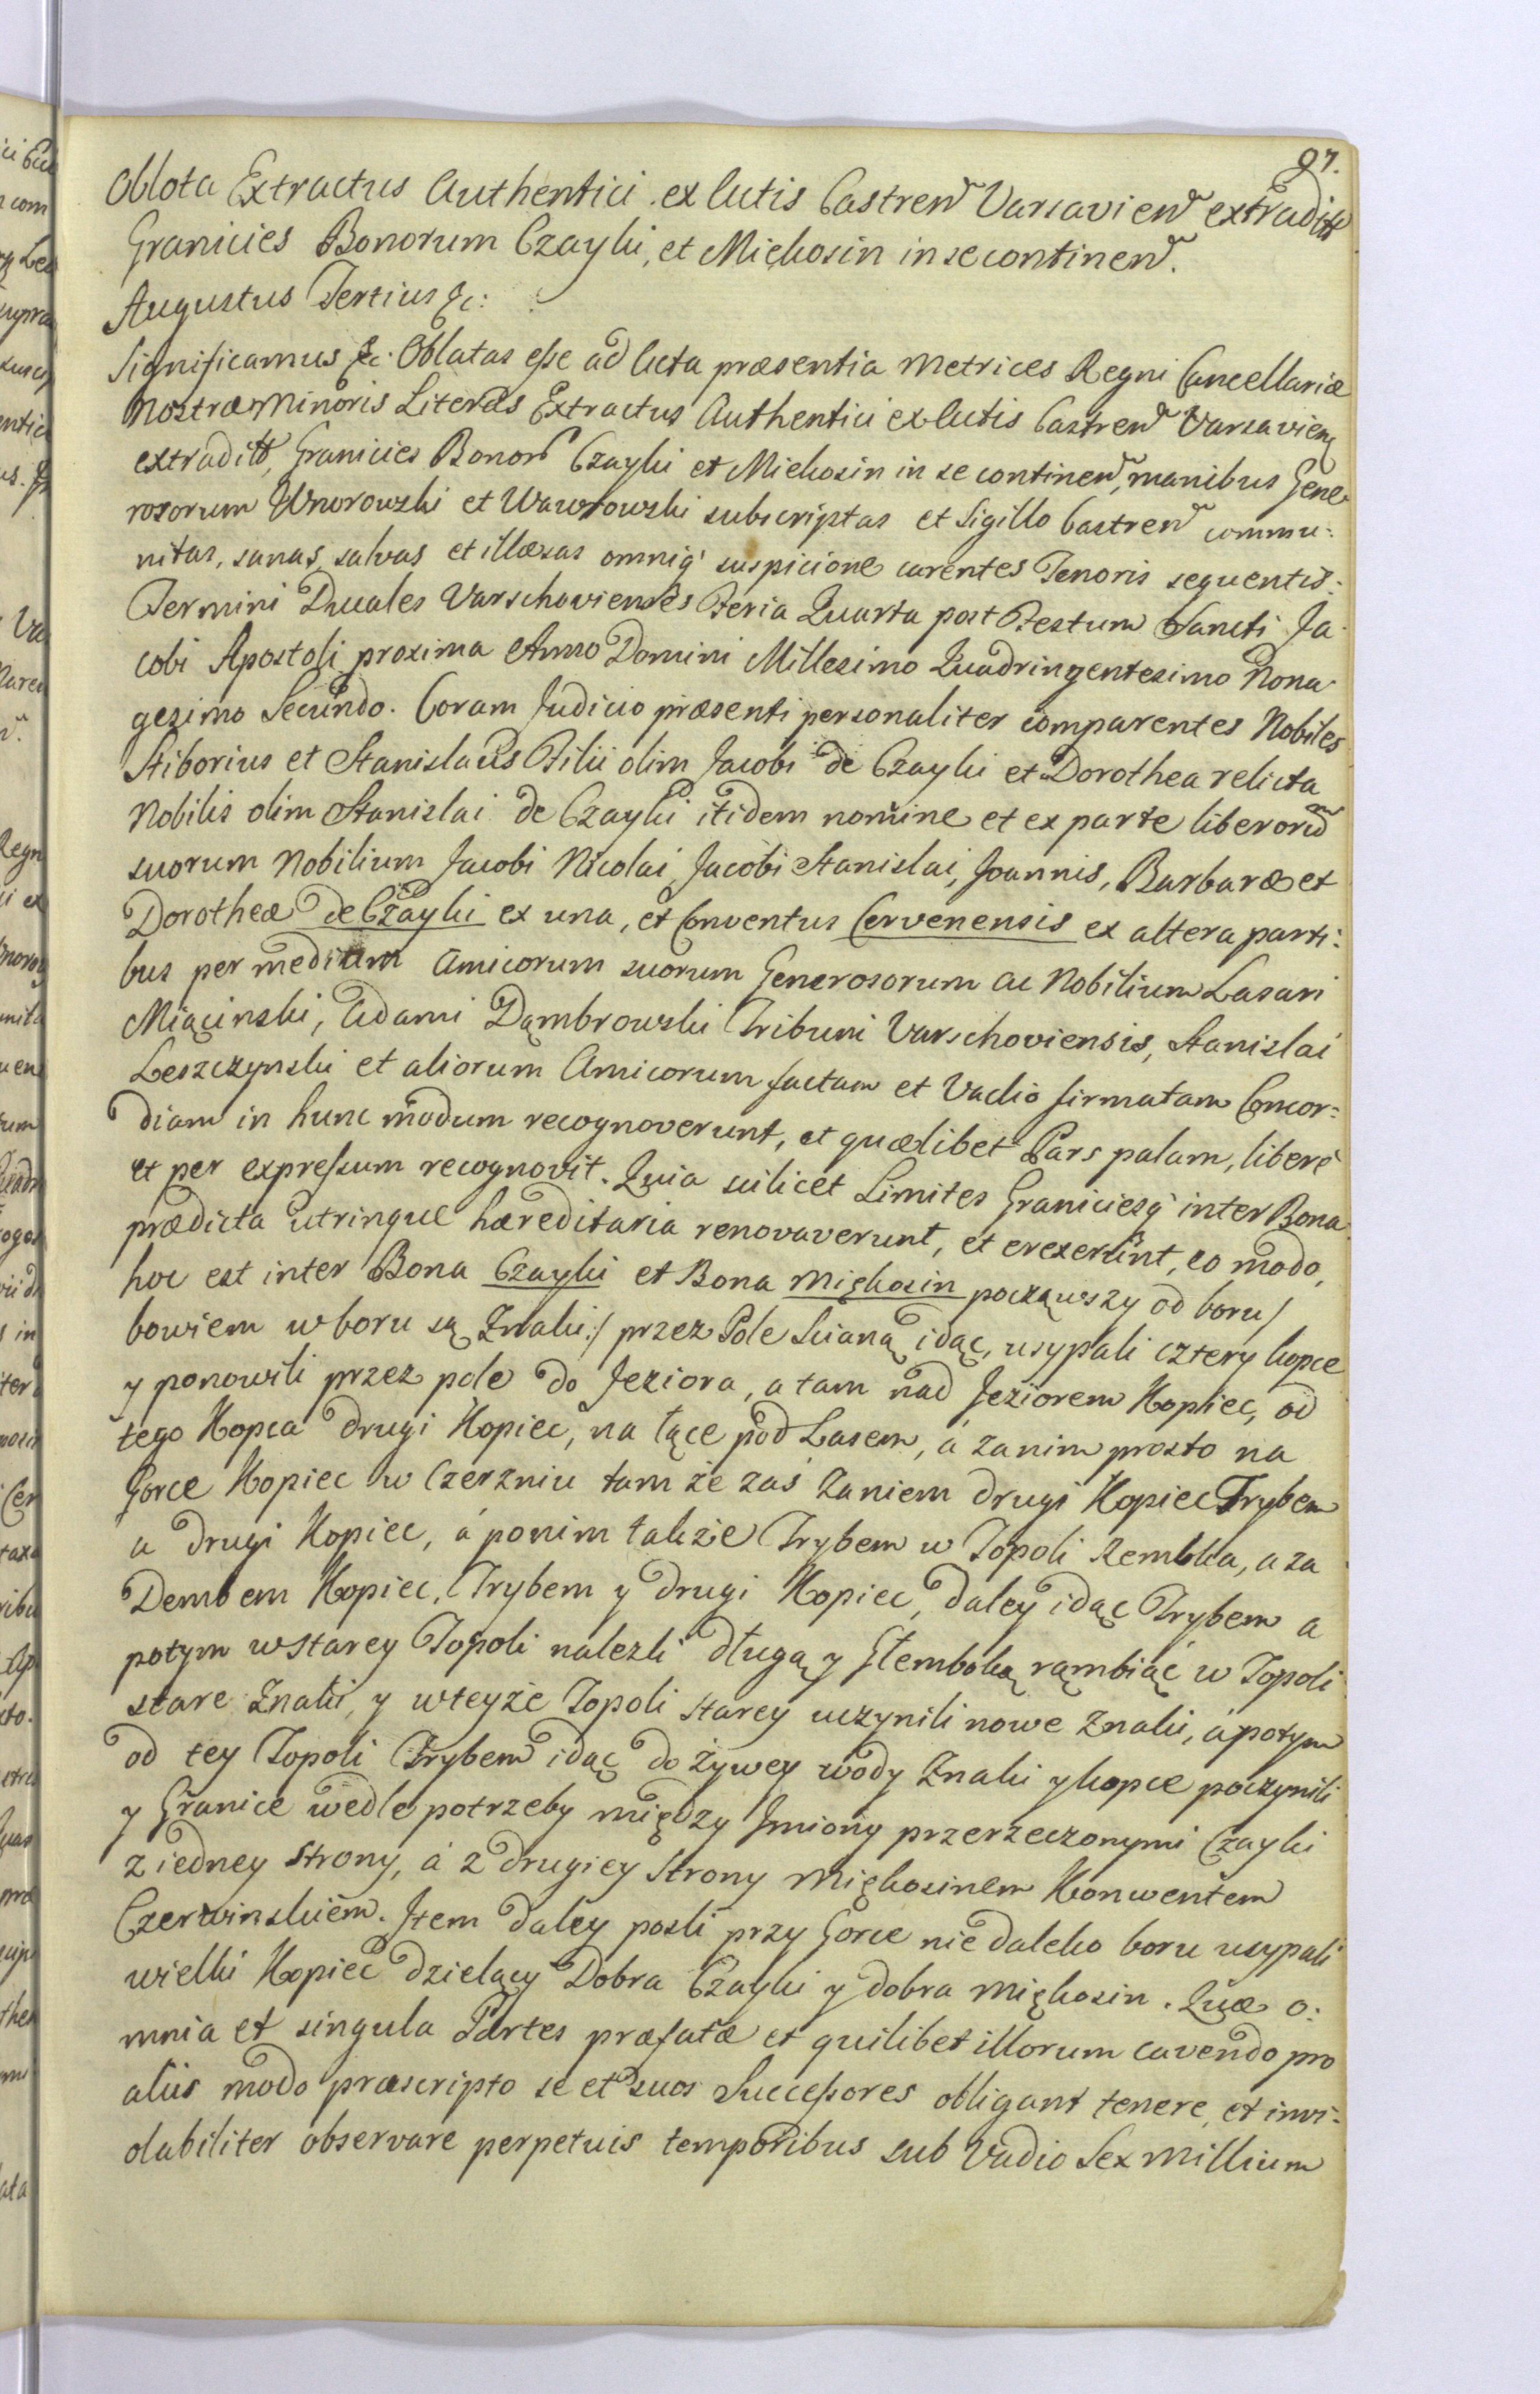 97.
Oblata Extractus Authentici ex Actis Castren Varsavien extradit
Granicies Bonorum Czayki, et Miękosin in se continen.
Augustus Tertius &c:
Significamus &c. Oblatas esse ad Acta præsentia Metrices Regni Cancellariæ
Nostræ Minoris Literas Extractus Authentici ex Actis Castren Varsavien
extradit, Granicies Bonor Czayki et Miękosin in se continen, manibus Gene
rosorum Wnorowski et Wawrowski subscriptas et Sigillo Castren commu:
nitas, sanas, salvas et illæsas omniq suspicione carentes Tenoris sequentis:
Termini Ducales Varschovienses Feria Quarta post Festum Sancti Ja
cobi Apostoli proxima Anno Domini Millesimo Quadringentesimo Nona
gesimo Secundo. Coram Judicio præsenti personaliter comparentes Nobiles
Stiborius et Stanislaus Filii olim Jacobi de Czayki et Dorothea relicta
Nobilis olim Stanislai de Czayki itidem nomine et ex parte liberoru
suorum Nobilium Jacobi Nicolai, Jacobi Stanislai, Joannis, Barbaræ et
Dorotheæ de Czayki ex una, et Conventus Cervenensis ex altera parti:
bus per medium Amicorum suorum Generosorum ac Nobilium Lasari
Miącinski, Adami Dąmbrowski Tribuni Varschoviensis, Stanislai
Leszczynski et aliorum Amicorum factam et Vadio firmatam Concor:
diam in hunc modum recognoverunt, et quælibet Pars palam, liberè
et per expressum recognovit. Quia scilicet Limites Graniciesq inter Bona
prædicta utrinque hæreditaria renovaverunt, et erexerunt, eo modo,
hoc est inter Bona Czayki et Bona Miękosin począwszy od boru /
bowiem w boru są Znaki :/ przez Pole Scianą idąc, usypali cztery kopce
y ponowili przez pole do Jeziora, a tam nad Jeziorem Kopiec, od
tego Kopca drugi Kopiec, na łące pod Lasem, á zanim prosto na
Gorce Kopiec w Czerzniu tam że zaś zaniem drugi Kopiec Trybem
a drugi Kopiec, á ponim także Trybem w Topoli Rembka, a za
Dembem Kopiec, Trybem y drugi Kopiec, daley idąc Trybem a
potym w starey Topoli nalezli długą y Głemboką rąmbiąć w Topoli
stare Znaki, y w teyże Topoli starey uczynili nowe Znaki, á potym
od tey Topoli Trybem idąc do żywey wody Znaki y kopce poczynili
y Granice wedle potrzeby między Jmiony przerzeczonymi Czayki
z iedney strony, á z drugiey strony Miękosinem Konwentem
Czerwinskiem. Item daley posli przy Gorce niedaleko boru usypali
wielki Kopiec dzielący Dobra Czayki y dobra Miękosin. Quæ o:
mnia et singula Partes præfatæ et quilibet illorum cavendo pro
aliis modo præscripto se et suos Successores obligant tenere, et invi:
olabiliter observare perpetuis temporibus sub Vadio Sex Millium